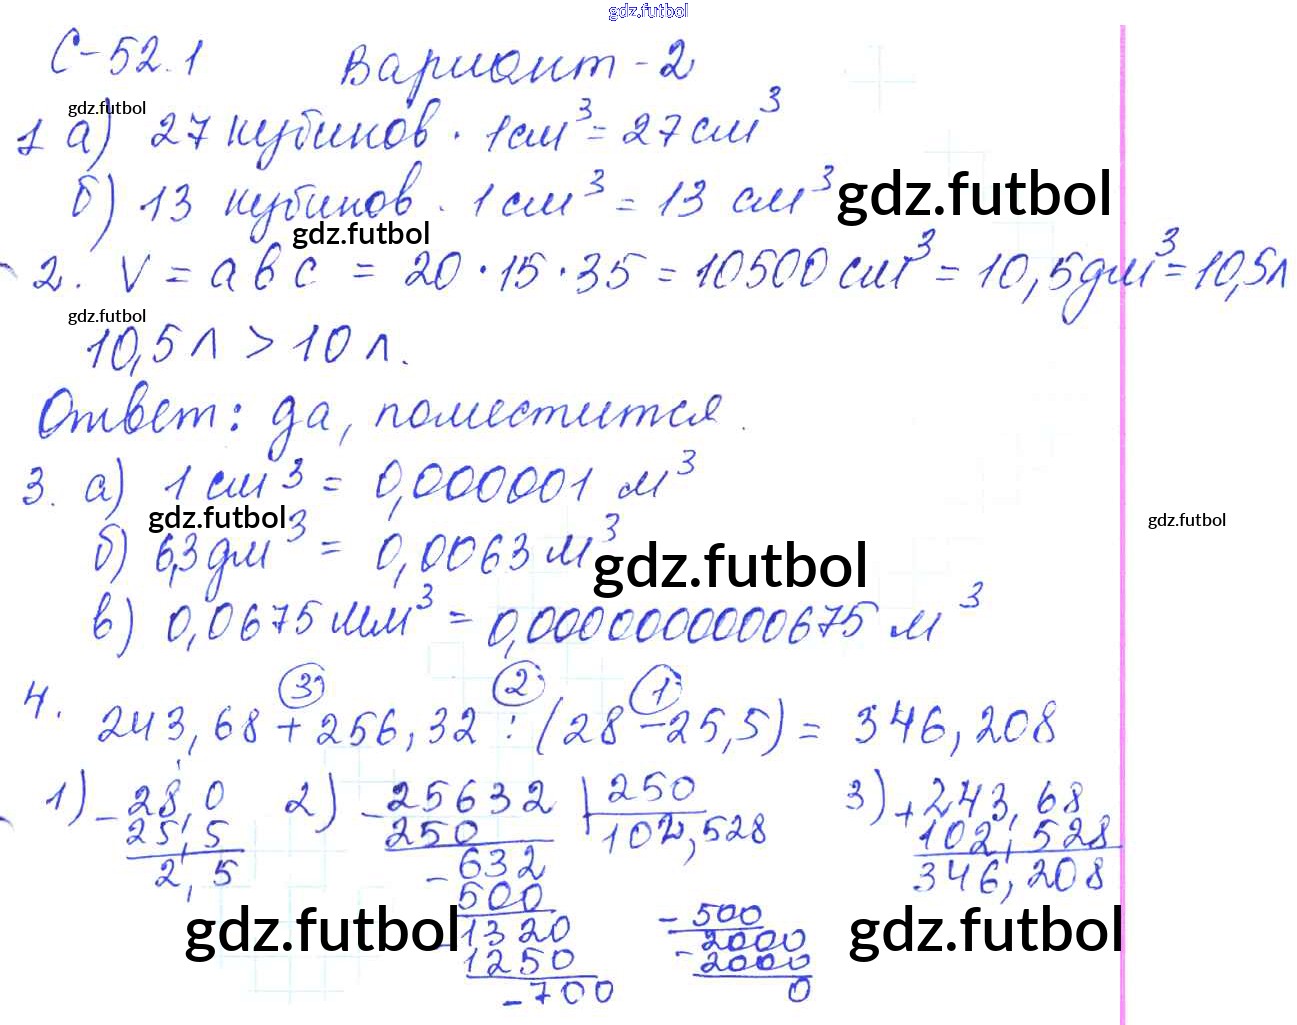 gdz.futbol
С-52.1 Вариант-2
gdz.futbol
1 а) 27 кубиков · 1см³ = 27см³
б) 13 кубиков · 1см³ = 13 см³ gdz.futbol
gdz.futbol
2. V = abc = 20·15·35 = 10500 см³ = 10,5дм³ = 10,5л
gdz.futbol
10,5л > 10 л.
Ответ: да, поместится.
3. а) 1 см³ = 0,000001 м³
gdz.futbol gdz.futbol
б) 6,3дм³ = 0,0063 м³ gdz.futbol
в) 0,0675 мм³ = 0,0000000000675 м³
4. 243,68 + 256,32 : (28 - 25,5) = 346,208
3 2 1
1) - 28,0 2) - 25632 250 3) + 243,68
25,5 250 102,528 102,528
2,5 - 632 346,208
500 - 500
gdz.futbol 1320 - 2000 gdz.futbol
1250 2000
- 700 0